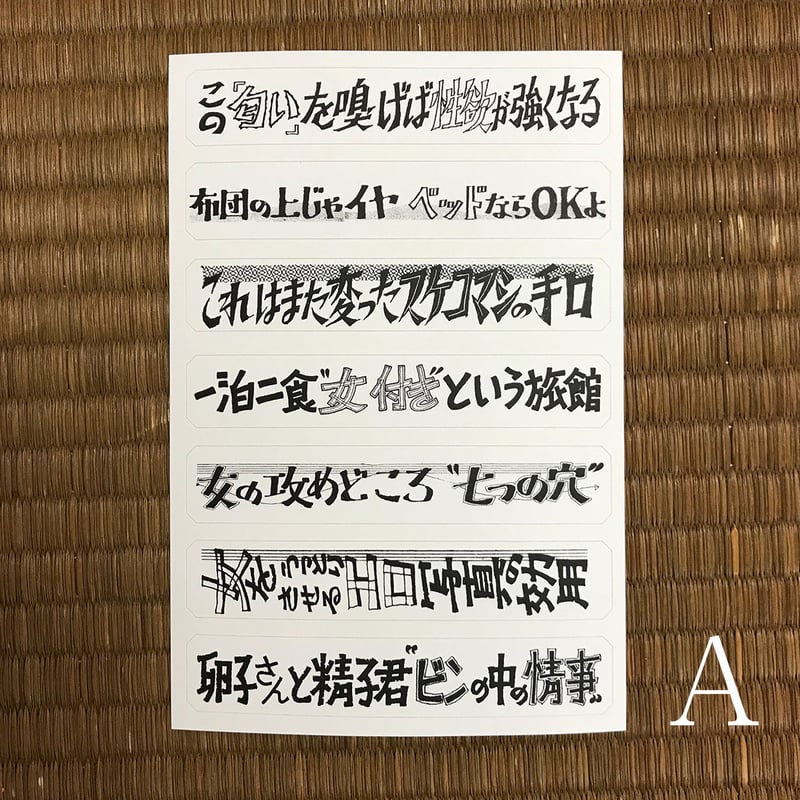 この『匂い』を嗅げば性欲が強くなる
布団の上じゃイヤ ベッドならOKよ
これはまた変ったスケコマシの手口
一泊二食“女付き”という旅館
女の攻めどころ“七つの穴”
女をうっとりさせるエロ写真の効用
卵子さんと精子君“ビンの中の情事”
A